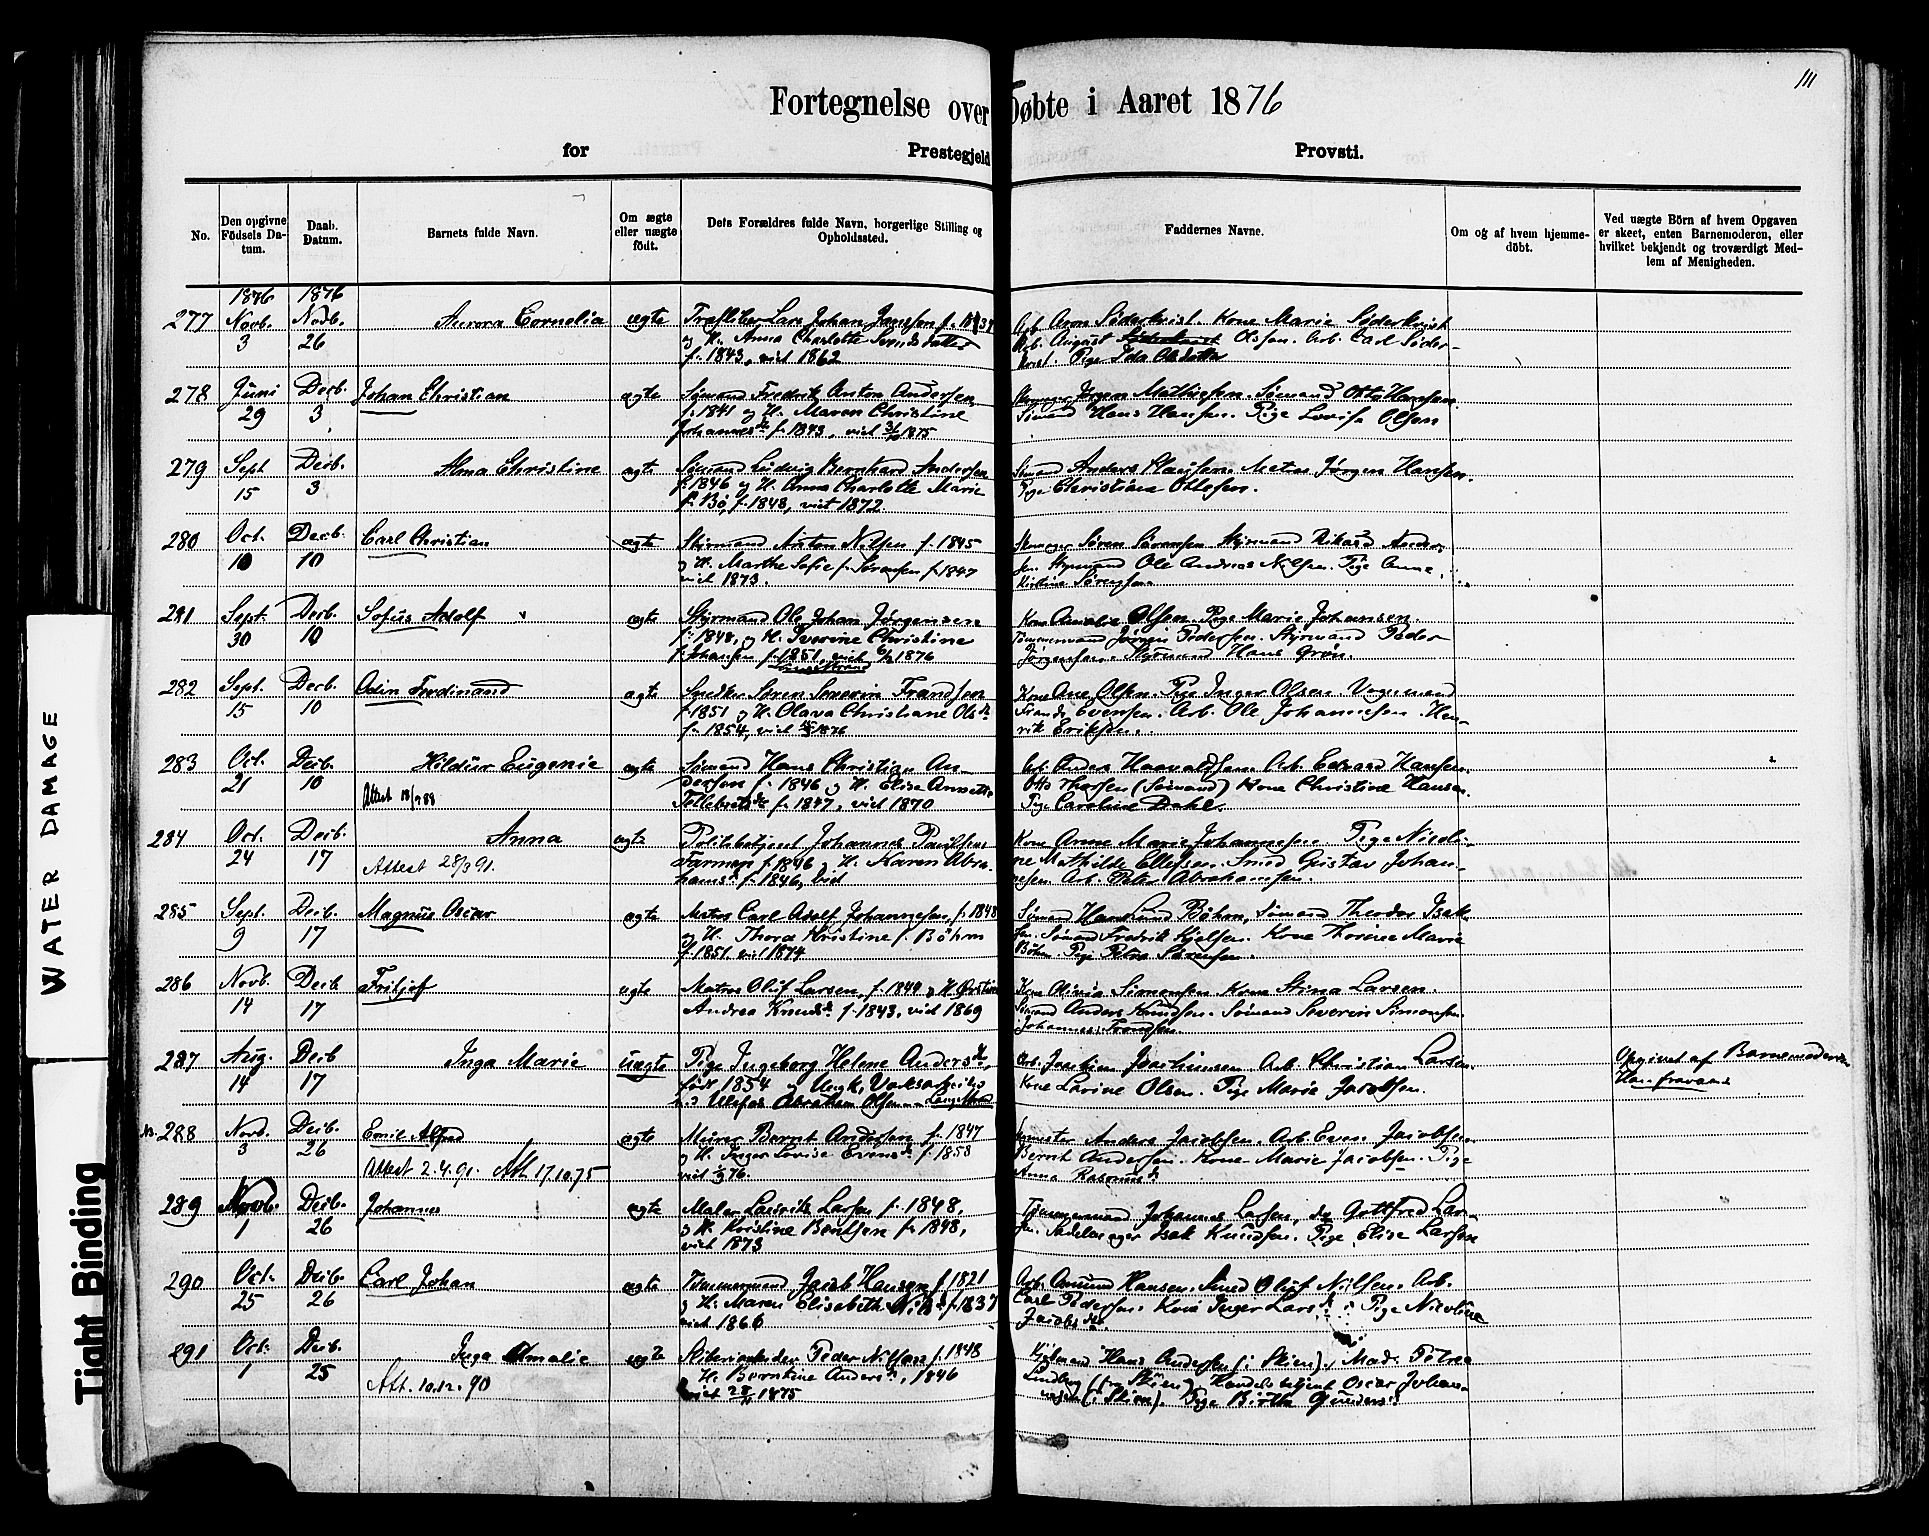 111
Fortegnelse over Døbte i Aaret 1876
for Prestegjeld Provsti.
No.
Den opgivne Födsels Datum.
Daab. Datum.
Barnets fulde Navn.
Om ægte eller uægte födt.
Dets Forældres fulde Navn, borgerlige Stilling og Opholdssted.
Faddernes Navne.
Om og af hvem hjemmedöbt.
Ved uægte Börn af hvem Opgaven er skeet, enten Barnemoderen, eller hvilket bekjendt og troværdigt Medlem af Menigheden.
1876 1876
277 Novb. 3 Novb. 26 Aurora Cornelia ægte Lars Johan f.
og H. Anna Charlotte
f. 1843, viet 1862
Arb. Aron Söderkvist. Kone Marie Söderkvist
Arb. August Olssen. Arb. Carl Söder-
kvist. Pige Ida Olsdatter
278 Juni 29 Decb. 3 Johan Christian ægte Sømand Fredrik Anton Andersen,
f. 1841 og H. Maren Christine
Johannesd. f. 1843, viet 1875
Jørgen Mathisen. Sømand Otto Hansen.
Sømand Hans Hansen. Pige Lovise Olsen
279 Sept 15 Decb. 3 Alma Christine ægte Sømand Ludvig Bernhard Andersen
f. 1846 og H. Anna Charlotte Marie
f. Bö, f. 1848, viet 1872.
Sømand Anders Matros Jørgen Hansen.
Pige Christiane Ottesen.
280 Oct. 10 Decb. 10 Carl Christian ægte Styrmand Anton Nilsen f. 1845
og H. Marthe Sofie f. Sørensen f. 1847
viet 1873.
Søren Sørensen Styrmand Rikard Ander-
sen Styrmand Ole Andreas Nilsen. Pige Anne
Kirstine Sørensen.
281 Sept. 30 Decb. 10 Sofus Adolf ægte Styrmand Ole Johan Jørgensen
f. 1848, og H. Severine Christine
f. Johansen f. 1851, viet 1876
Kone Amalie Olsen. Pige Marie Johansen.
Tømmermand Jörgen Pedersen. Styrmand Peder
Jørgensen. Styrmand Hans Grøn.
282 Sept. 15 Decb. 10 Odin Ferdinand ægte Snedker Søren Severin Frandsen
f. 1851 og H. Olava Christiane Olsd.
f. 1854, viet 1876
Kone Ane Olsen. Pige Inger Olsen. Vognmand
Frands Evensen. Arb. Ole Johannesen. Hen-
rik Eriksen.
283 Oct. 21 Decb. 10 Hildur Eugenie ægte Sømand Hans Christian An-
dersen f. 1846 og H. Elise Annette
Tollefsd. f. 1847, viet 1870
Attest 18/9 88
Arb. Anders Haavaldsen. Arb. Edvard Hansen.
Otto Thorsen (Sømand) Kone Christine Hansen.
Pige Caroline Dahl.
284 Oct. 24 Decb. 17 Anna ægte Politibetjent Johannes Paulsen
Farmen f. 1846 og H. Karen Abra-
hamsd. f. 1846, viet
Attest 28/3 91.
Kone Anne Marie Johannesen Pige Nicoli-
ne Mathilde Ellefsen. Smed Gustav Johan-
nesen Arb. Peter Abrahamsen.
285 Sept. 9 Decb. 17 Magnus Oscar ægte Matros Carl Adolf Johannesen, f. 1848
og H. Thora Kristine f. Böhm
f. 1851. viet 1874
Sømand Hans Lund Böhm, Sømand Theodor Isak-
sen. Sømand Fredrik Kjelsen. Kone Thorine Marie
Böhm. Pige Petra Sørensen.
286 Novb. 14 Decb. 17 Fritjof ægte Matros Oluf Larsen, f. 1844 og H.
Andrea Knudsd. f. 1843, viet 1869
Kone Olivia Simonsen Kone Stina Larsen.
Sømand Anders Knudsen. Sømand Severin Simonsen.
Johannes Frandsen.
287 Aug. 14 Decb 17 Inga Marie uægte Pige Ingeborg Helene Andersd.,
født 1854 og Ungk. Værksarbeider
Ulefos Abraham Olsen
Arb. Joachim Joachimsen Arb. Christian Larsen.
Kone Larine Olsen. Pige Marie Jacobsen.
Opgivet af Barnemoderen
Han fravær.
288 Novb. 3 Decb. 26 Emil Alfred ægte Murer Bernt Andersen f. 1847
og H. Inger Lovise Evensd. f. 1853
viet 76.
Attest 2.4.91. Att. 17.10.75
Anders Jacobsen. Arb. Even Jacobsen.
Bernt Andersen. Kone Marie Jacobsen. Pige
Anna Rasmusd.
289 Novb. 1 Decb. 26 Johannes ægte Maler Lauritz Larsen f. 1848,
og H. Kristine Bentsen f. 1848,
viet 1873
Tømmermand Johannes Larsen, do Gottfred Lar-
sen. Sadelmager Isak Knudsen. Pige Elise Larsen
290 Oct. 25 Decb. 26 Carl Johan ægte Tømmermand Jacob Hansen f. 1821
og H. Maren Elisabeth f. 1837
viet 1866
Arb. Amund Hansen. Smed Oluf Nilsen. Arb.
Carl Pedersen. Kone Inger Larsd. Pige Nicoline
Jacobsd.
291 Oct. 1 Decb. 25 Inga Amalie ægte Peder Nilsen f. 1848
H. Berntine Andersd., 1846
viet 1875
Att. 10.12.90
Hans Andersen (i Skien), Mad. Petrea
Lindberg (fra Skien) Handelsbetjent Oscar Johan-
nesen (i Skien). Pige Birthe Gundersd.
WATER DAMAGE
Tight Binding